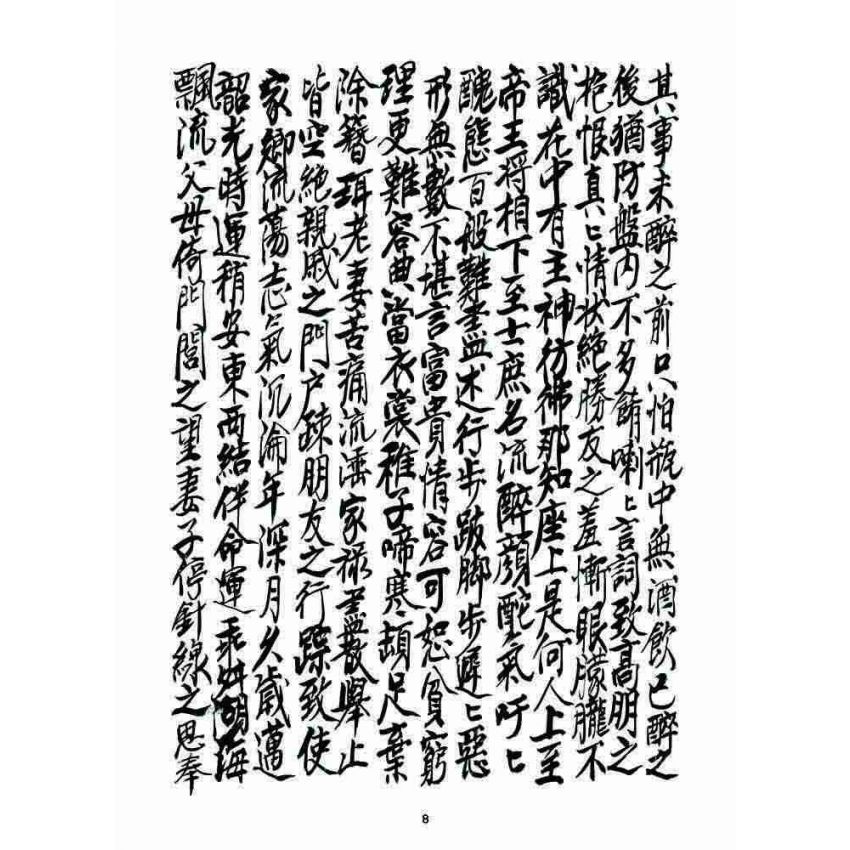 其事未醉之前只怕瓶中無酒飲已醉之
後猶防盤內不多餚喇〻言詞致高朋之
抱恨真〻情状絕勝友之羞慚眼朦朧不
識花中有主神彷彿那知座上是何人上至
帝王将相下至士庶名流醉顏酡氣吁〻
醜態百般難盡述行步跛脚步遲〻惡
形無數不堪言富貴情容可恕貧窮
理更難容典當衣裳稚子啼寒頓足棄
除簪珥老妻苦痛流洒家祿盡散舉止
皆空絕親戚之門戶踈朋友之行踪致使
家鄉流蕩志氣沉淪年深月久歲邁
韶光時運稍安東西結伴命運乖舛湖海
飄流父母倚門閭之望妻子停針線之思奉
8